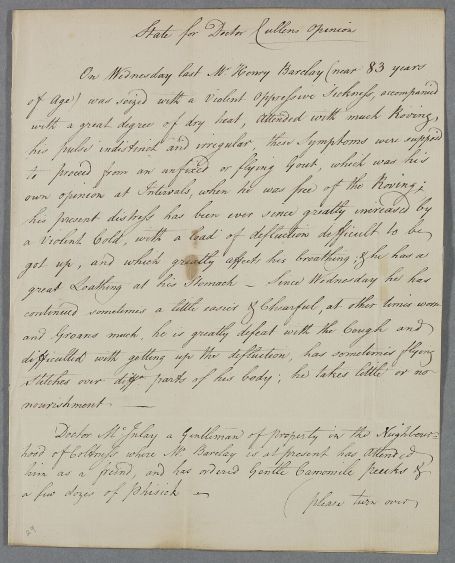 State for Doctor Cullens Opinion
On Wednesday last Mr Henry Barclay (near 83 years
of Age) was seized with a Violent Oppressive Sickness, accompanied
with a great degree of dry heat, Attended with much Roving,
his pulse indistinct and irregular, these Symptoms were supposed
to proceed from an unfixed or flying Gout, which was his
own opinion at Intervals, when he was free of the Roving;
his present distress has been ever since greatly increased by
a Violent Cold, with a load of defluction difficult to be
got up, and which greatly affects his breathing & he has a
great Loathing at his Stomach — Since Wednesday he has
continued sometimes a little easier & Chearful, at other times worse
and Groans much, he is greatly defeat with the Cough and
difficulted with getting up the defluction, has sometimes flying
Stitches over diffr parts of his body; he takes little or no
nourishment —
Doctor McInlay a Gentleman of property in the Neighbour-
hood of Coldness where Mr Barclay is at present has Attended
him as a freind, and has ordered Gentle Camomile &
a few dozes of Phisick —
(please turn over
29